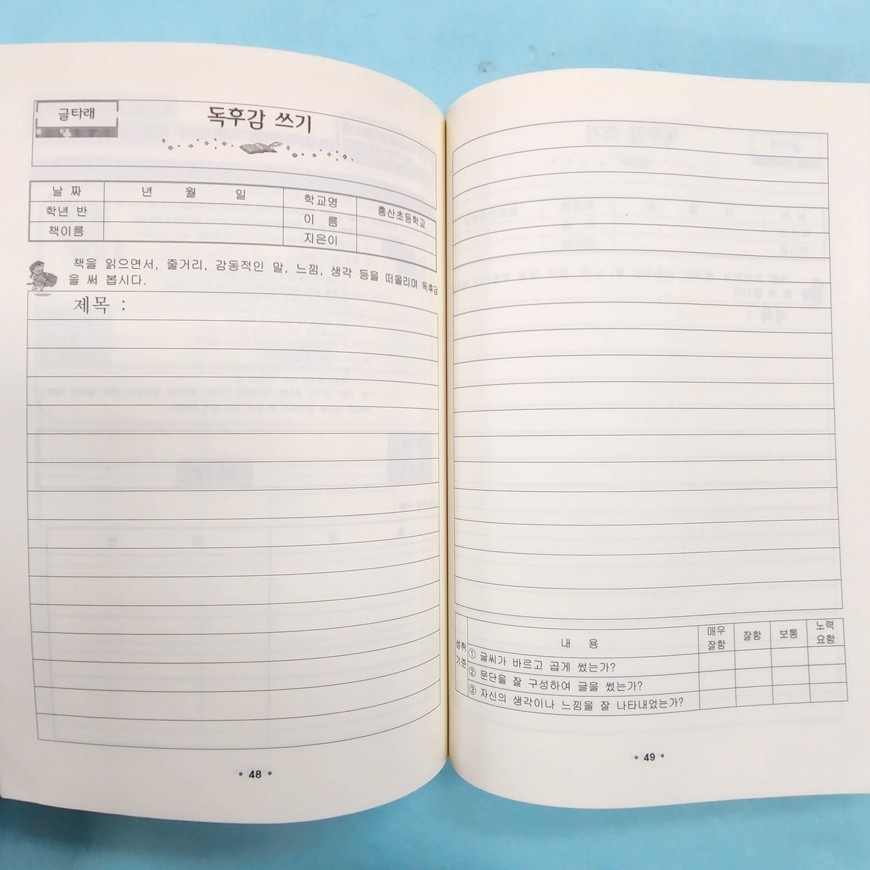 글타래
독후감 쓰기
날 짜 년 월 일 학교명 홍산초등학교
학년 반 이 름
책이름 지은이
책을 읽으면서, 줄거리, 감동적인 말, 느낌, 생각 등을 떠올리며 독후감
을 써 봅시다.
제목 :
48
성취 기준 내 용 매우 잘함 잘함 보통 노력 요함
① 글씨가 바르고 곱게 썼는가?
② 문단을 잘 구성하여 글을 썼는가?
③ 자신의 생각이나 느낌을 잘 나타내었는가?
49